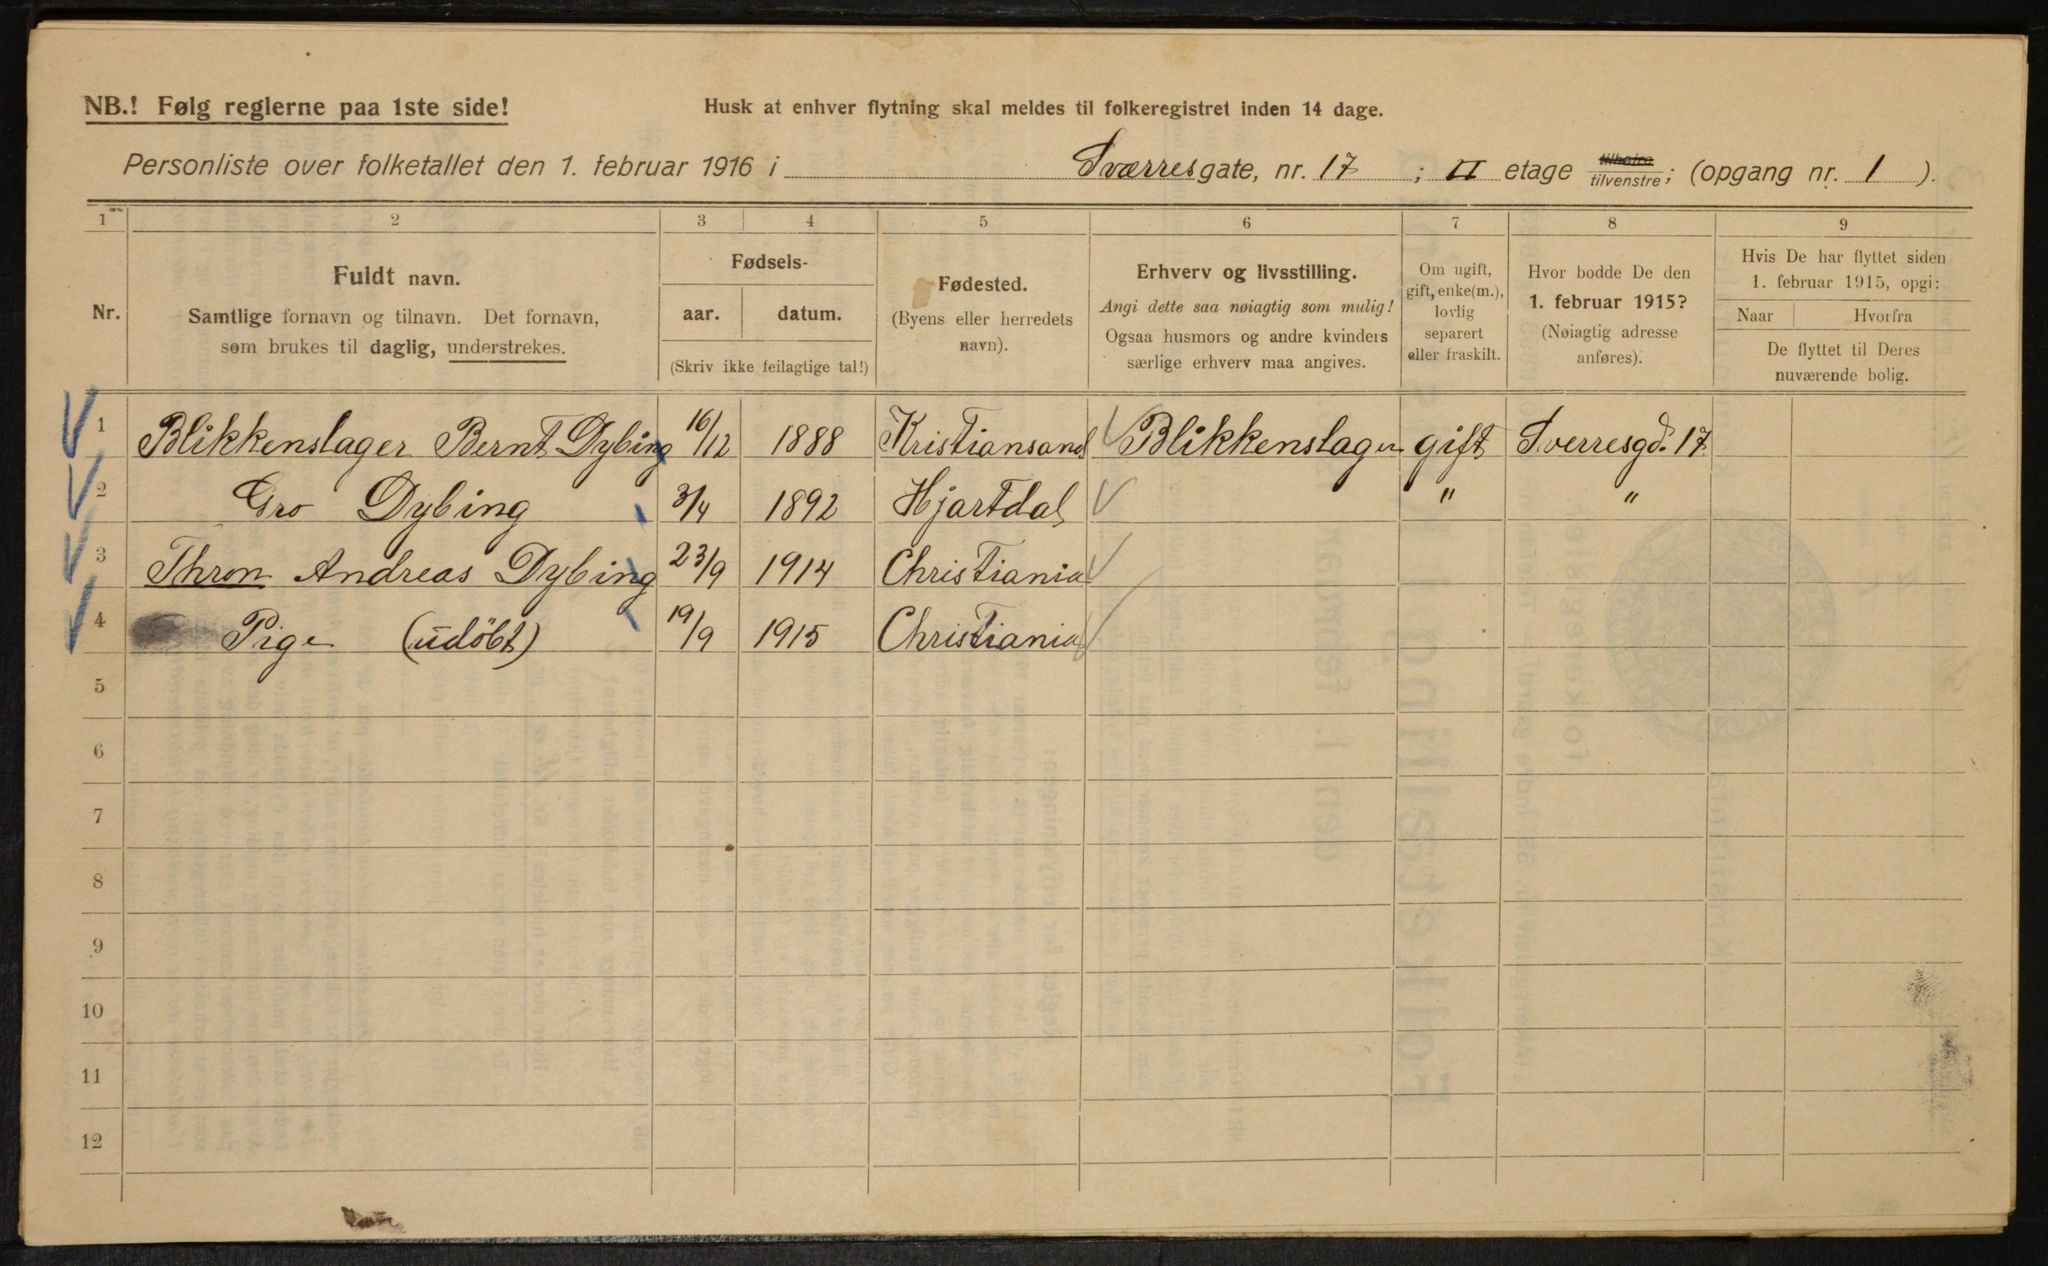 NB.! Følg reglerne paa 1ste side!
Husk at enhver flytning skal meldes til folkeregistret inden 14 dage.
Personliste over folketallet den 1. februar 1916 i Sværresgate, nr. 17 ; II etage tilhøire tilvenstre; (opgang nr. 1 ).
1 2 3 4 5 6 7 8 9
Nr.
Fuldt navn.
Samtlige fornavn og tilnavn. Det fornavn,
som brukes til daglig, understrekes.
Fødsels-
aar. datum.
(Skriv ikke feilagtige tal!)
Fødested.
(Byens eller herredets
navn).
Erhverv og livsstilling.
Angi dette saa nøiagtig som mulig!
Ogsaa husmors og andre kvinders
særlige erhverv maa angives.
Om ugift,
gift, enke(m.),
lovlig
separert
eller fraskilt.
Hvor bodde De den
1. februar 1915?
(Nøiagtig adresse
anføres).
Hvis De har flyttet siden
1. februar 1915, opgi:
Naar Hvorfra
De flyttet til Deres
nuværende bolig.
1 Blikkenslager Bernt Dybing 16/12 1888 Kristiansand Blikkenslager gift Sverresgd. 17
2 Gro Dybing 3/4 1892 Hjartdal " "
3 Thron Andreas Dybing 23/9 1914 Christiania
4 Pige (udöbt) 19/9 1915 Christiania
5
6
7
8
9
10
11
12